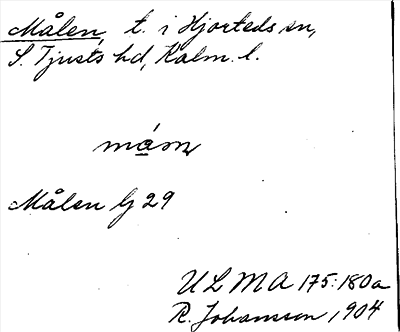 Målen, t. i Hjorteds sn,
S. Tjusts hd, Kalm. l.
Målen Lj 29
ULMA 175:180a
R. Johansson 1904